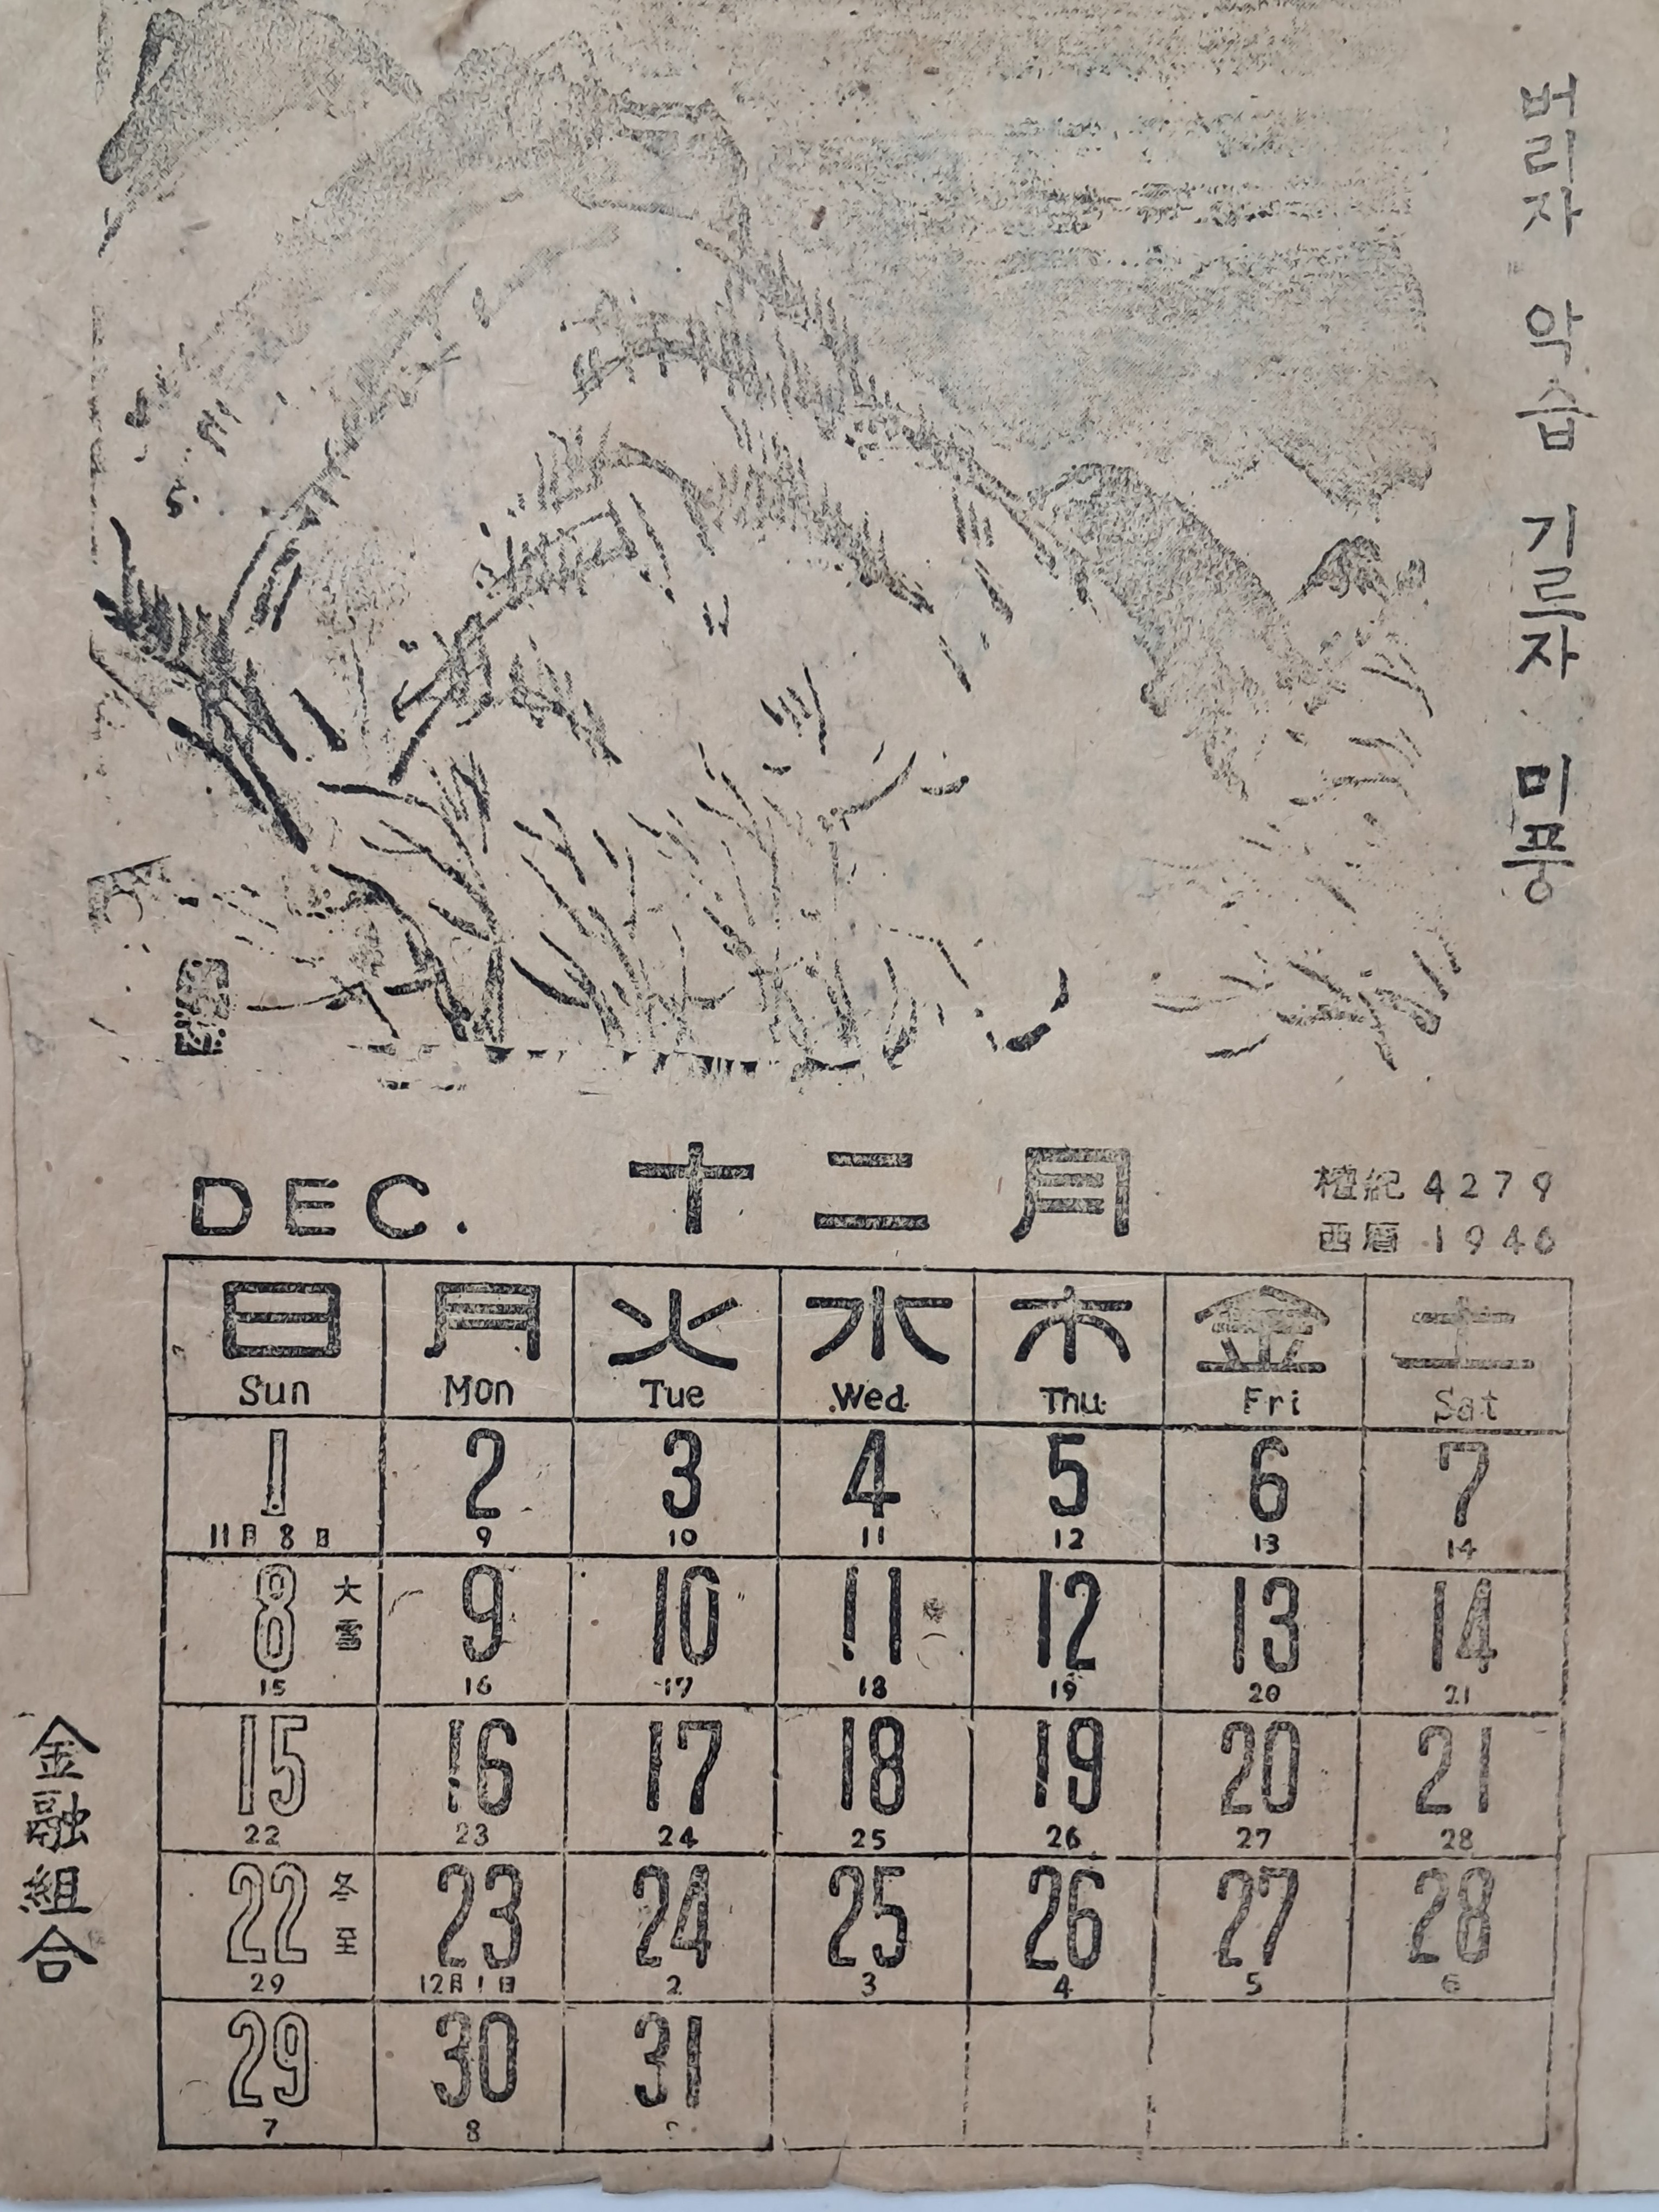 버리자 악습 기르자 미풍
DEC. 十二月
檀紀 4279
西曆 1946
日 月 火 水 木 金 土
Sun Mon Tue Wed Thu Fri Sat
1 2 3 4 5 6 7
11月8日 9 10 11 12 13 14
8 大雪 9 10 11 12 13 14
15 16 17 18 19 20 21
15 16 17 18 19 20 21
22 23 24 25 26 27 28
22 冬至 23 24 25 26 27 28
29 12月1日 2 3 4 5 6
29 30 31
7 8
金融組合